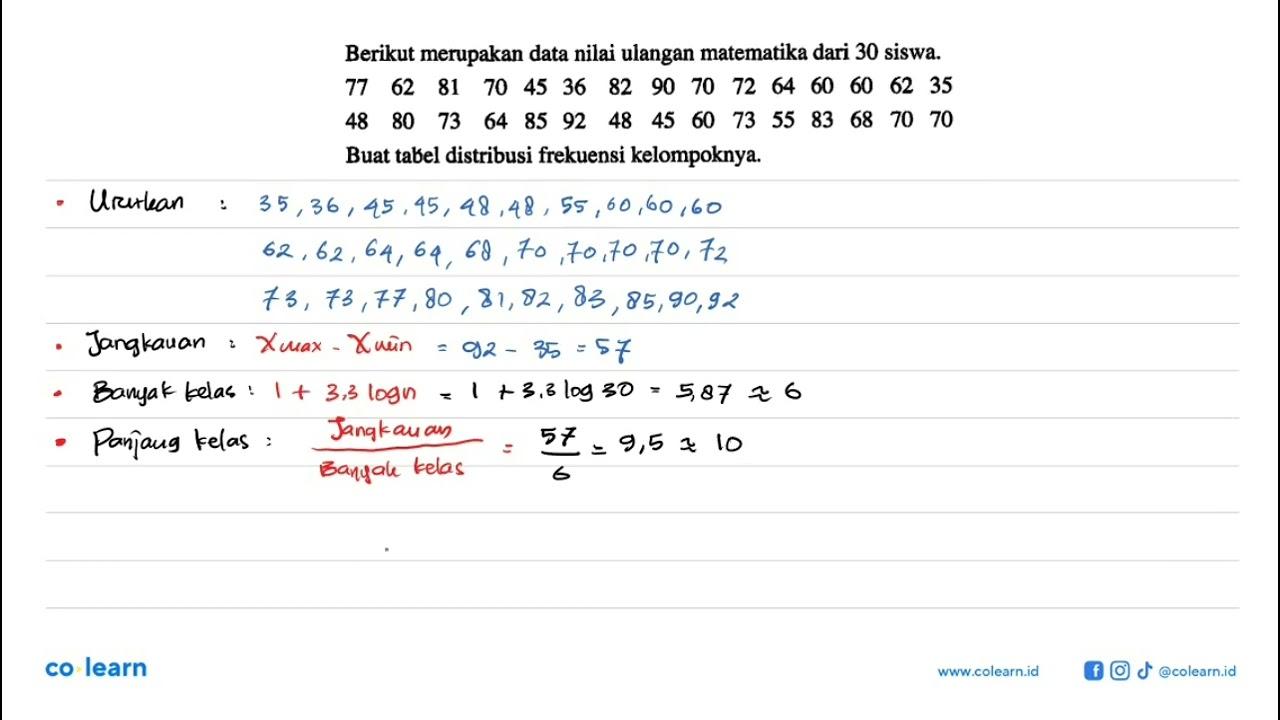 Berikut merupakan data nilai ulangan matematika dari 30 siswa.
77 62 81 70 45 36 82 90 70 72 64 60 60 62 35
48 80 73 64 85 92 48 45 60 73 55 83 68 70 70
Buat tabel distribusi frekuensi kelompoknya.
• Urutkan : 35, 36, 45, 45, 48, 48, 55, 60, 60, 60
62, 62, 64, 64, 68, 70, 70, 70, 70, 72
73, 73, 77, 80, 81, 82, 83, 85, 90, 92
• Jangkauan : Xmax - Xmin = 92 - 35 = 57
• Banyak kelas : 1 + 3,3 log n = 1 + 3,3 log 30 = 5,87 ≈ 6
• Panjang kelas : Jangkauan / Banyak kelas = 57 / 6 = 9,5 ≈ 10
co learn
www.colearn.id @colearn.id